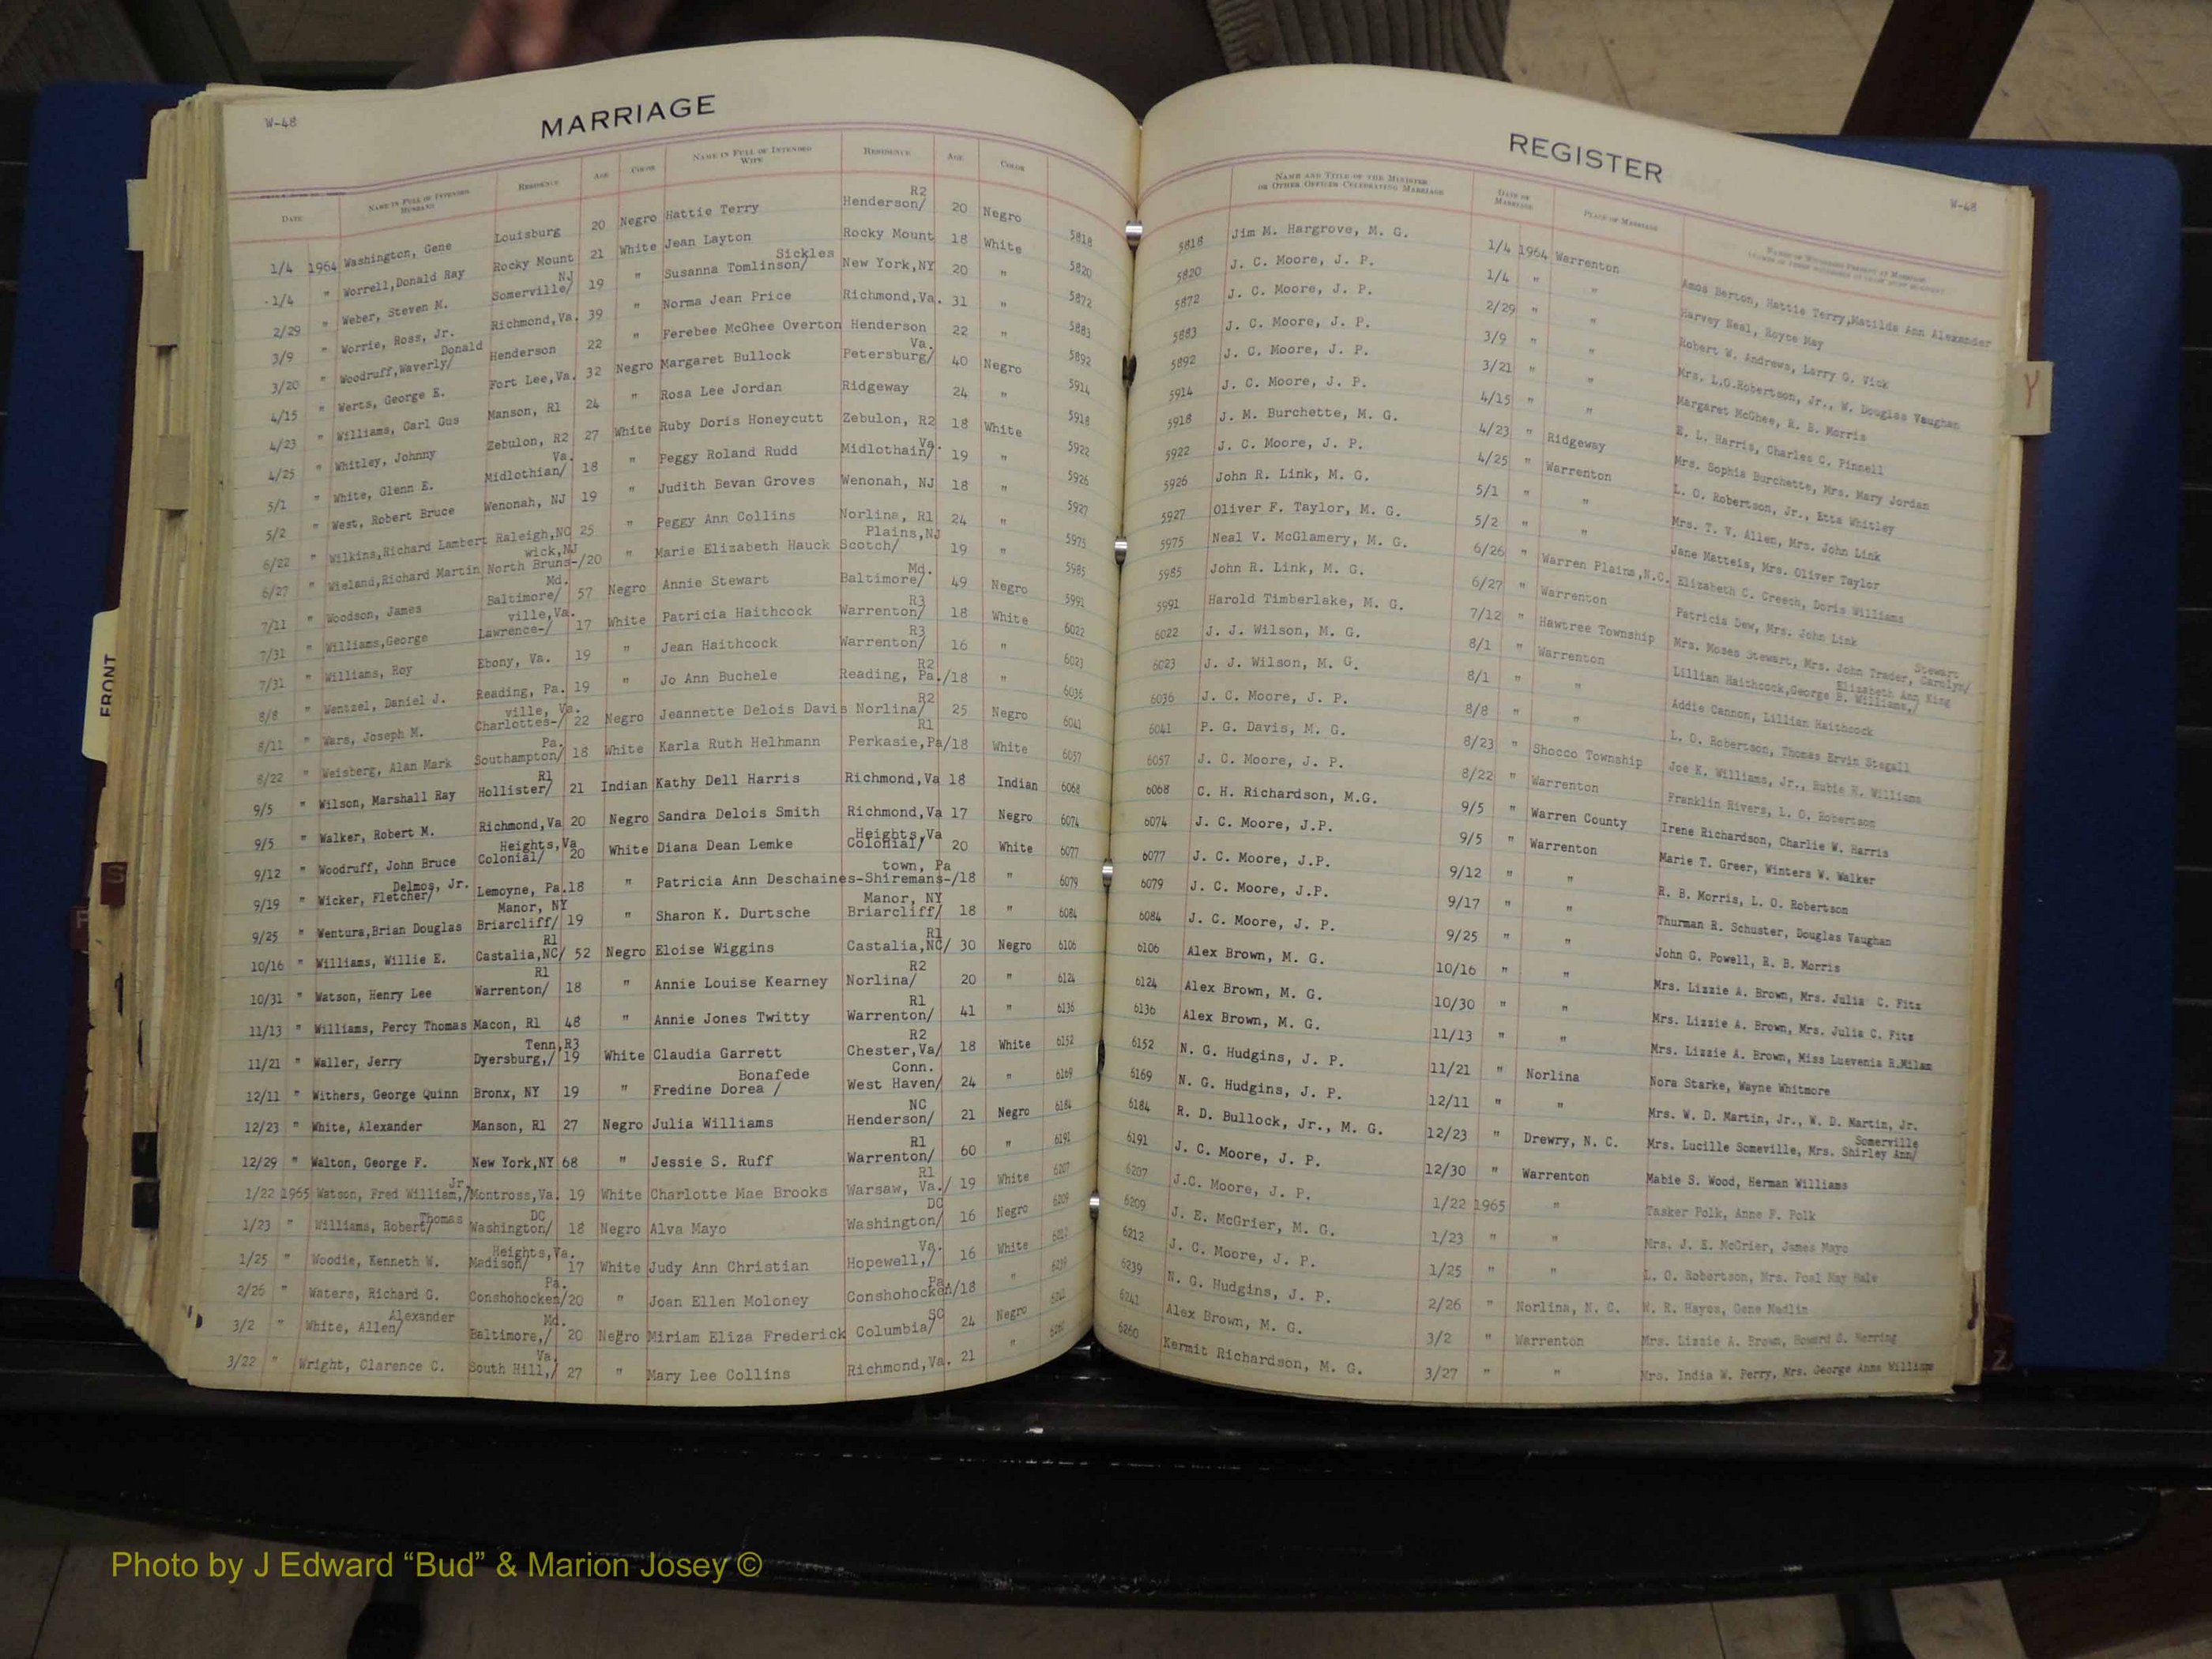 W-48
MARRIAGE
DATE NAME IN FULL OF INTENDED HUSBAND RESIDENCE AGE COLOR NAME IN FULL OF INTENDED WIFE RESIDENCE AGE COLOR
1/4 1964 Washington, Gene Louisburg 20 Negro Hattie Terry Henderson/ R2 20 Negro 5818
1/4 " Worrell,Donald Ray Rocky Mount 21 White Jean Layton Rocky Mount 18 White 5820
2/29 " Weber, Steven M. Somerville/ NJ 19 " Susanna Tomlinson/ Sickles New York,NY 20 " 5872
3/9 " Worrie, Ross, Jr. Richmond,Va. 39 " Norma Jean Price Richmond,Va. 31 " 5883
3/20 " Woodruff,Waverly/ Donald Henderson 22 " Ferebee McGhee Overton Henderson 22 " 5892
4/15 " Werts, George E. Fort Lee,Va. 32 Negro Margaret Bullock Petersburg/ Va. 40 Negro 5914
4/23 " Williams, Carl Gus Manson, R1 24 " Rosa Lee Jordan Ridgeway 24 " 5918
4/25 " Whitley, Johnny Zebulon, R2 27 White Ruby Doris Honeycutt Zebulon, R2 18 White 5922
5/1 " White, Glenn E. Midlothian/ Va. 18 " Peggy Roland Rudd Midlothain/ Va. 19 " 5926
5/2 " West, Robert Bruce Wenonah, NJ 19 " Judith Bevan Groves Wenonah, NJ 18 " 5927
6/22 " Wilkins,Richard Lambert Raleigh,NC 25 " Peggy Ann Collins Norlina, R1 24 " 5975
6/27 " Wieland,Richard Martin North Bruns-/ wick,NJ 20 " Marie Elizabeth Hauck Scotch/ Plains,NJ 19 " 5985
7/11 " Woodson, James Baltimore/ Md. 57 Negro Annie Stewart Baltimore/ Md. 49 Negro 5991
7/31 " Williams,George Lawrence-/ ville,Va. 17 White Patricia Haithcock Warrenton/ R3 18 White 6022
7/31 " Williams, Roy Ebony, Va. 19 " Jean Haithcock Warrenton/ R3 16 " 6023
8/8 " Wentzel, Daniel J. Reading, Pa. 19 " Jo Ann Buchele Reading, Pa./ R2 18 " 6036
8/11 " Wars, Joseph M. Charlottes-/ ville, Va. 22 Negro Jeannette Delois Davis Norlina/ R2 25 Negro 6041
8/22 " Weisberg, Alan Mark Southampton/ Pa. 18 White Karla Ruth Helhmann Perkasie,Pa/ R1 18 White 6057
9/5 " Wilson, Marshall Ray Hollister/ R1 21 Indian Kathy Dell Harris Richmond,Va 18 Indian 6068
9/5 " Walker, Robert M. Richmond,Va 20 Negro Sandra Delois Smith Richmond,Va 17 Negro 6074
9/12 " Woodruff, John Bruce Colonial/ Heights,Va 20 White Diana Dean Lemke Colonial/ Heights,Va 20 White 6077
9/19 " Wicker, Fletcher/ Delmos, Jr. Lemoyne, Pa.18 " Patricia Ann Deschaines-Shiremans-/ town, Pa 18 " 6079
9/25 " Wentura,Brian Douglas Briarcliff/ Manor, NY 19 " Sharon K. Durtsche Briarcliff/ Manor, NY 18 " 6084
10/16 " Williams, Willie E. Castalia,NC/ R1 52 Negro Eloise Wiggins Castalia,NC/ R1 30 Negro 6106
10/31 " Watson, Henry Lee Warrenton/ R1 18 " Annie Louise Kearney Norlina/ R2 20 " 6124
11/13 " Williams, Percy Thomas Macon, R1 48 " Annie Jones Twitty Warrenton/ R1 41 " 6136
11/21 " Waller, Jerry Dyersburg,/ Tenn,R3 19 White Claudia Garrett Chester,Va/ R2 18 White 6152
12/11 " Withers, George Quinn Bronx, NY 19 " Fredine Dorea / Bonafede West Haven/ Conn. 24 " 6169
12/23 " White, Alexander Manson, R1 27 Negro Julia Williams Henderson/ NC 21 Negro 6184
12/29 " Walton, George F. New York,NY 68 " Jessie S. Ruff Warrenton/ R1 60 " 6191
1/22 1965 Watson, Fred William,/ Jr. Montross,Va. 19 White Charlotte Mae Brooks Warsaw, Va./ R1 19 White 6207
1/23 " Williams, Robert/ Thomas Washington/ DC 18 Negro Alva Mayo Washington/ DC 16 Negro 6209
1/25 " Woodie, Kenneth W. Madison/ Heights,Va. 17 White Judy Ann Christian Hopewell,/ Va. 16 White 6212
2/26 " Waters, Richard G. Conshohocken/ Pa. 20 " Joan Ellen Moloney Conshohocken/ Pa 18 " 6239
3/2 " White, Allen/ Alexander Baltimore,/ Md. 20 Negro Miriam Eliza Frederick Columbia/ SC 24 Negro 6241
3/22 " Wright, Clarence C. South Hill,/ Va. 27 " Mary Lee Collins Richmond,Va. 21 " 6260
REGISTER
W-48
NAME AND TITLE OF THE MINISTER OR OTHER OFFICER CELEBRATING MARRIAGE DATE OF MARRIAGE PLACE OF MARRIAGE
5818 Jim M. Hargrove, M. G. 1/4 1964 Warrenton Amos Berton, Hattie Terry,Matilda Ann Alexander
5820 J. C. Moore, J. P. 1/4 " " Harvey Neal, Royce May
5872 J. C. Moore, J. P. 2/29 " " Robert W. Andrews, Larry G. Vick
5883 J. C. Moore, J. P. 3/9 " " Mrs. L.O.Robertson, Jr., W. Douglas Vaughan
5892 J. C. Moore, J. P. 3/21 " " Margaret McGhee, R. B. Morris
5914 J. C. Moore, J. P. 4/15 " " E. L. Harris, Charles C. Pinnell
5918 J. M. Burchette, M. G. 4/23 " Ridgeway Mrs. Sophia Burchette, Mrs. Mary Jordan
5922 J. C. Moore, J. P. 4/25 " Warrenton L. O. Robertson, Jr., Etta Whitley
5926 John R. Link, M. G. 5/1 " " Mrs. T. V. Allen, Mrs. John Link
5927 Oliver F. Taylor, M. G. 5/2 " " Jane Matteis, Mrs. Oliver Taylor
5975 Neal V. McGlamery, M. G. 6/26 " Warren Plains,N.C. Elizabeth C. Creech, Doris Williams
5985 John R. Link, M. G. 6/27 " Warrenton Patricia Dew, Mrs. John Link
5991 Harold Timberlake, M. G. 7/12 " Hawtree Township Mrs. Moses Stewart, Mrs. John Trader, Carolyn/ Stewart
6022 J. J. Wilson, M. G. 8/1 " Warrenton Lillian Haithcock,George B. Williams,/ Elizabeth Ann King
6023 J. J. Wilson, M. G. 8/1 " " Addie Cannon, Lillian Haithcock
6036 J. C. Moore, J. P. 8/8 " " L. O. Robertson, Thomas Ervin Stegall
6041 P. G. Davis, M. G. 8/23 " Shocco Township Joe K. Williams, Jr., Rubie H. Williams
6057 J. C. Moore, J. P. 8/22 " Warrenton Franklin Rivers, L. O. Robertson
6068 C. H. Richardson, M.G. 9/5 " Warren County Irene Richardson, Charlie W. Harris
6074 J. C. Moore, J.P. 9/5 " Warrenton Marie T. Greer, Winters W. Walker
6077 J. C. Moore, J.P. 9/12 " " R. B. Morris, L. O. Robertson
6079 J. C. Moore, J.P. 9/17 " " Thurman R. Schuster, Douglas Vaughan
6084 J. C. Moore, J.P. 9/25 " " John G. Powell, R. B. Morris
6106 Alex Brown, M. G. 10/16 " " Mrs. Lizzie A. Brown, Mrs. Julia C. Fitz
6124 Alex Brown, M. G. 10/30 " " Mrs. Lizzie A. Brown, Mrs. Julia C. Fitz
6136 Alex Brown, M. G. 11/13 " " Mrs. Lizzie A. Brown, Miss Luevenia R.Milam
6152 N. G. Hudgins, J. P. 11/21 " Norlina Nora Starke, Wayne Whitmore
6169 N. G. Hudgins, J. P. 12/11 " " Mrs. W. D. Martin, Jr., W. D. Martin, Jr.
6184 R. D. Bullock, Jr., M. G. 12/23 " Drewry, N. C. Mrs. Lucille Someville, Mrs. Shirley Ann/ Somerville
6191 J. C. Moore, J. P. 12/30 " Warrenton Mabie S. Wood, Herman Williams
6207 J.C. Moore, J. P. 1/22 1965 " Tasker Polk, Anne F. Polk
6209 J. E. McGrier, M. G. 1/23 " " Mrs. J. E. McGrier, James Mayo
6212 J. C. Moore, J. P. 1/25 " " L. O. Robertson, Mrs. Poal May Hale
6239 N. G. Hudgins, J. P. 2/26 " Norlina, N. C. W. R. Hayes, Gene Medlin
6241 Alex Brown, M. G. 3/2 " Warrenton Mrs. Lizzie A. Brown, Howard S. Herring
6260 Kermit Richardson, M. G. 3/27 " " Mrs. India W. Perry, Mrs. George Anna Williams
FRONT
S
Y
Z
Photo by J Edward “Bud” & Marion Josey ©